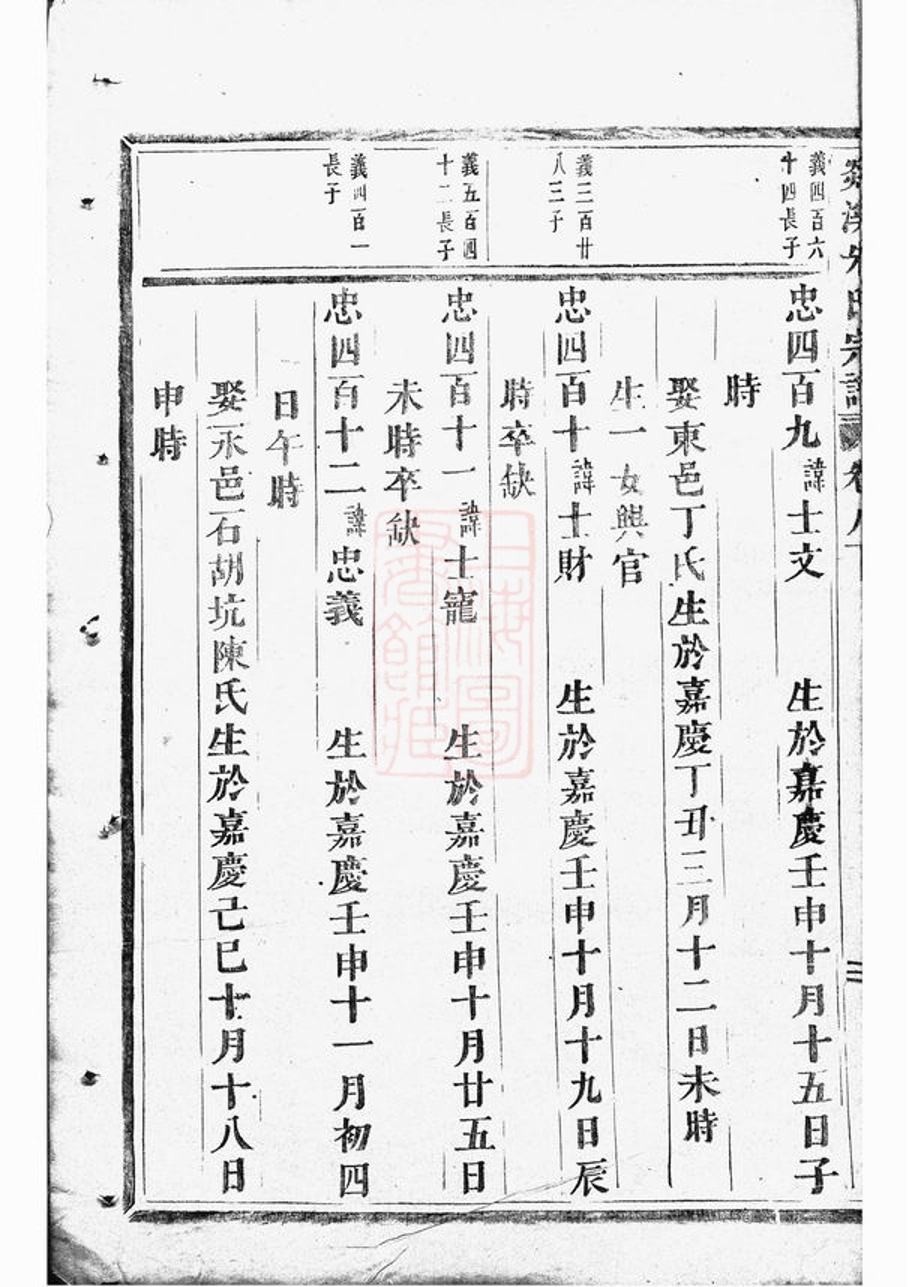 宗譜 卷八下
義四百六
十四長子
忠四百九諱士文 生於嘉慶壬申十月十五日子
時
娶東邑丁氏生於嘉慶丁丑三月十二日未時
生一女興官
義三百廿
八三子
忠四百十諱士財 生於嘉慶壬申十月十九日辰
時卒缺
義五百四
十二長子
忠四百十一諱士寵 生於嘉慶壬申十月廿五日
未時卒缺
義四百一
長子
忠四百十二諱忠義 生於嘉慶壬申十一月初四
日午時
娶永邑石胡坑陳氏生於嘉慶己巳十月十八日
申時
上海圖
書館藏